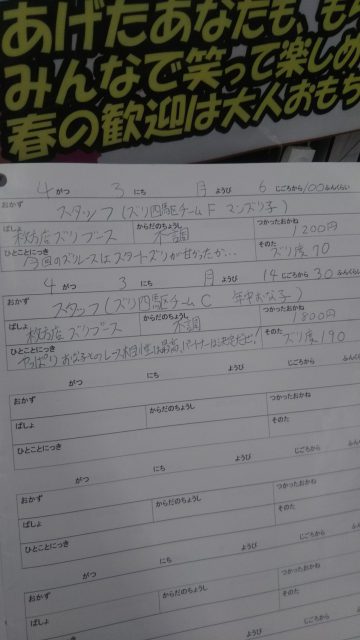 あげたあなたも、も
みんなで笑って楽しめ
春の歓迎は大人おもち
4 がつ 3 にち 月 ようび 6 じごろから 100 ふんくらい
おかず スタッフ(ズリ四駆チームF マンズリ子)
ばしょ 枚方店ズリブース からだのちょうし 不調 つかったおかね 1200円
ひとことにっき 今回のズリレースはスタートズリが甘かったか… そのた ズリ度70
4 がつ 3 にち 月 ようび 14 じごろから 30 ふんくらい
おかず スタッフ(ズリ四駆チームC 年中お な子)
ばしょ 枚方店ズリブース からだのちょうし 不調 つかったおかね 1800円
ひとことにっき やっぱりおな子とのレース相性は最高、パートナーは決定だゼ! そのた ズリ度190
がつ にち ようび じごろから ふんくらい
おかず
ばしょ からだのちょうし つかったおかね
ひとことにっき そのた
がつ にち ようび じごろから ふん
おかず
ばしょ からだのちょうし つかったおかね
ひとことにっき そのた
がつ にち ようび じごろから
おかず
ばしょ からだのちょうし